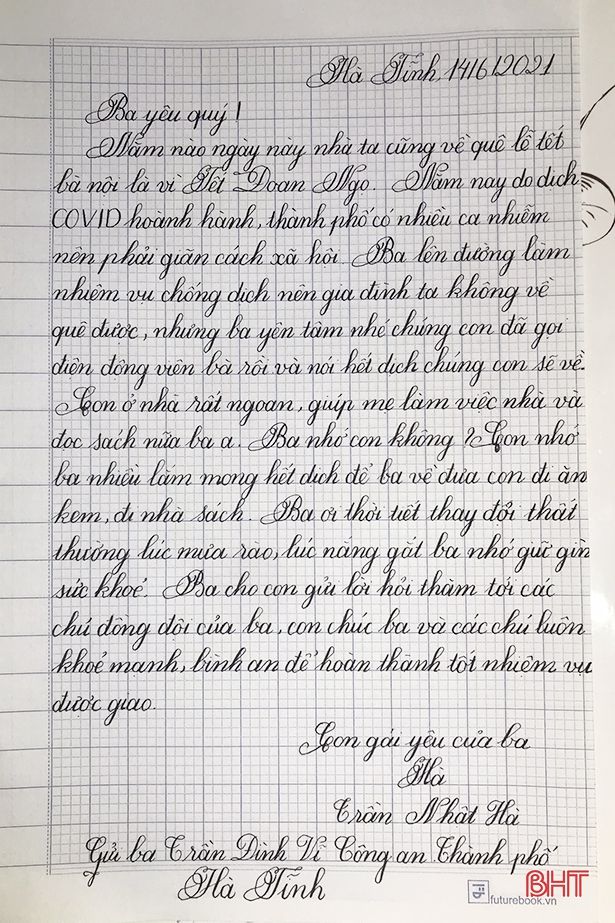 Hà Tĩnh, 14/6/2021
Ba yêu quý!
Năm nào ngày này nhà ta cũng về quê lễ tết
bà nội là vì Tết Đoan Ngọ. Năm nay do dịch
COVID hoành hành, thành phố có nhiều ca nhiễm
nên phải giãn cách xã hội. Ba lên đường làm
nhiệm vụ chống dịch nên gia đình ta không về
quê được, nhưng ba yên tâm nhé chúng con đã gọi
điện động viên bà rồi và nói hết dịch chúng con sẽ về.
Con ở nhà rất ngoan, giúp mẹ làm việc nhà và
đọc sách nữa ba ạ. Ba nhớ con không? Con nhớ
ba nhiều lắm mong hết dịch để ba về đưa con đi ăn
kem, đi nhà sách. Ba ơi thời tiết thay đổi thất
thường lúc mưa rào, lúc nắng gắt ba nhớ giữ gìn
sức khoẻ. Ba cho con gửi lời hỏi thăm tới các
chú đồng đội của ba, con chúc ba và các chú luôn
khoẻ mạnh, bình an để hoàn thành tốt nhiệm vụ
được giao.
Con gái yêu của ba
Hà
Trần Nhật Hà
Gửi ba Trần Đình Vĩ Công an Thành phố
Hà Tĩnh
futurebook.vn
BHT